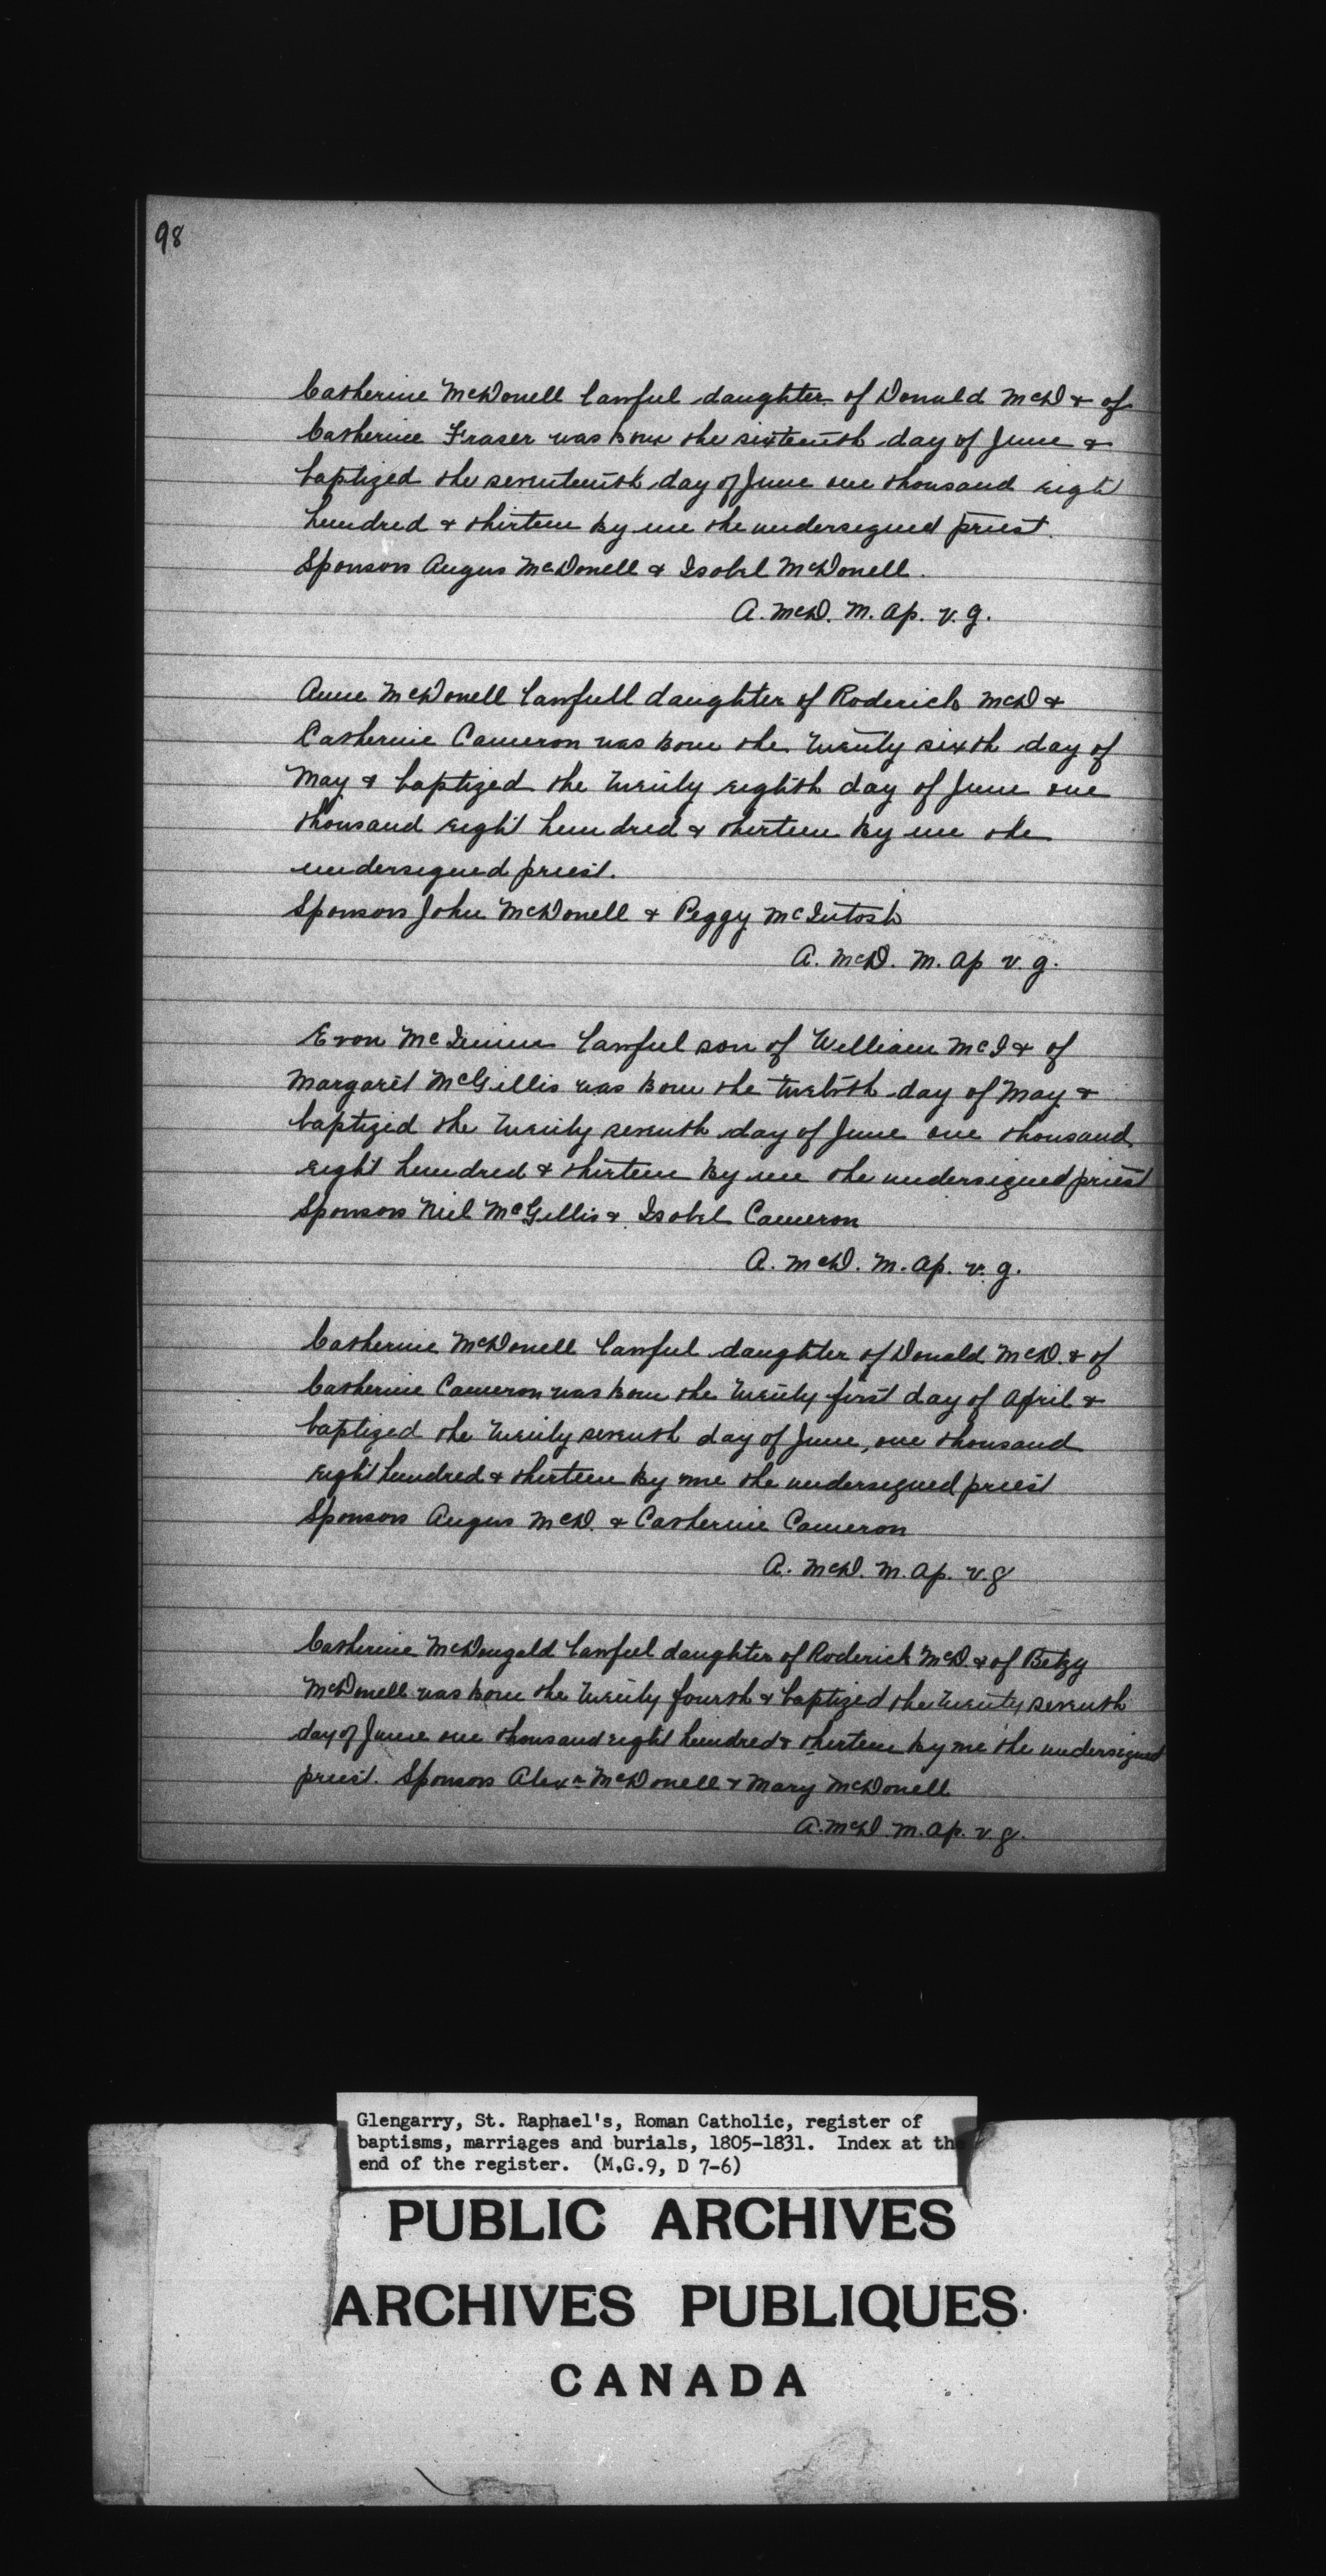 98
Catherine McDonell lawful daughter of Donald McD & of
Catherine Fraser was born the sixteenth day of June &
baptized the seventeenth day of June one thousand eight
hundred & thirteen by me the undersigned priest.
Sponsors Angus McDonell & Isobel McDonell.
A. McD. M. Ap. v. g.
Anne McDonell lawfull daughter of Roderick McD &
Catherine Cameron was born the twenty sixth day of
May & baptized the twenty eighth day of June one
thousand eight hundred & thirteen by me the
undersigned priest.
Sponsors John McDonell & Peggy McIntosh
A. McD. M. Ap v. g.
Evon lawful son of William McI & of
Margaret McGillis was born the twelvth day of May &
baptized the twenty seventh day of June one thousand
eight hundred & thirteen by me the undersigned priest
Sponsors Neil McGillis & Isobel Cameron
A. McD. M. Ap. v. g.
Catherine McDonell lawful daughter of Donald McD. & of
Catherine Cameron was born the twenty first day of April &
baptized the twenty seventh day of June, one thousand
eight hundred & thirteen by me the undersigned priest
Sponsors Angus McD. & Catherine Cameron
A. McD. M. Ap. v. g
Catherine McDougald lawful daughter of Roderick McD. & of Betzy
McDonell was born the twenty fourth & baptized the twenty seventh
day of June one thousand eight hundred & thirteen by me the undersigned
priest. Sponsors Alexr McDonell & Mary McDonell
A. McD M. Ap. v. g.
Glengarry, St. Raphael's, Roman Catholic, register of
baptisms, marriages and burials, 1805-1831. Index at the
end of the register. (M.G.9, D 7-6)
PUBLIC ARCHIVES
ARCHIVES PUBLIQUES
CANADA